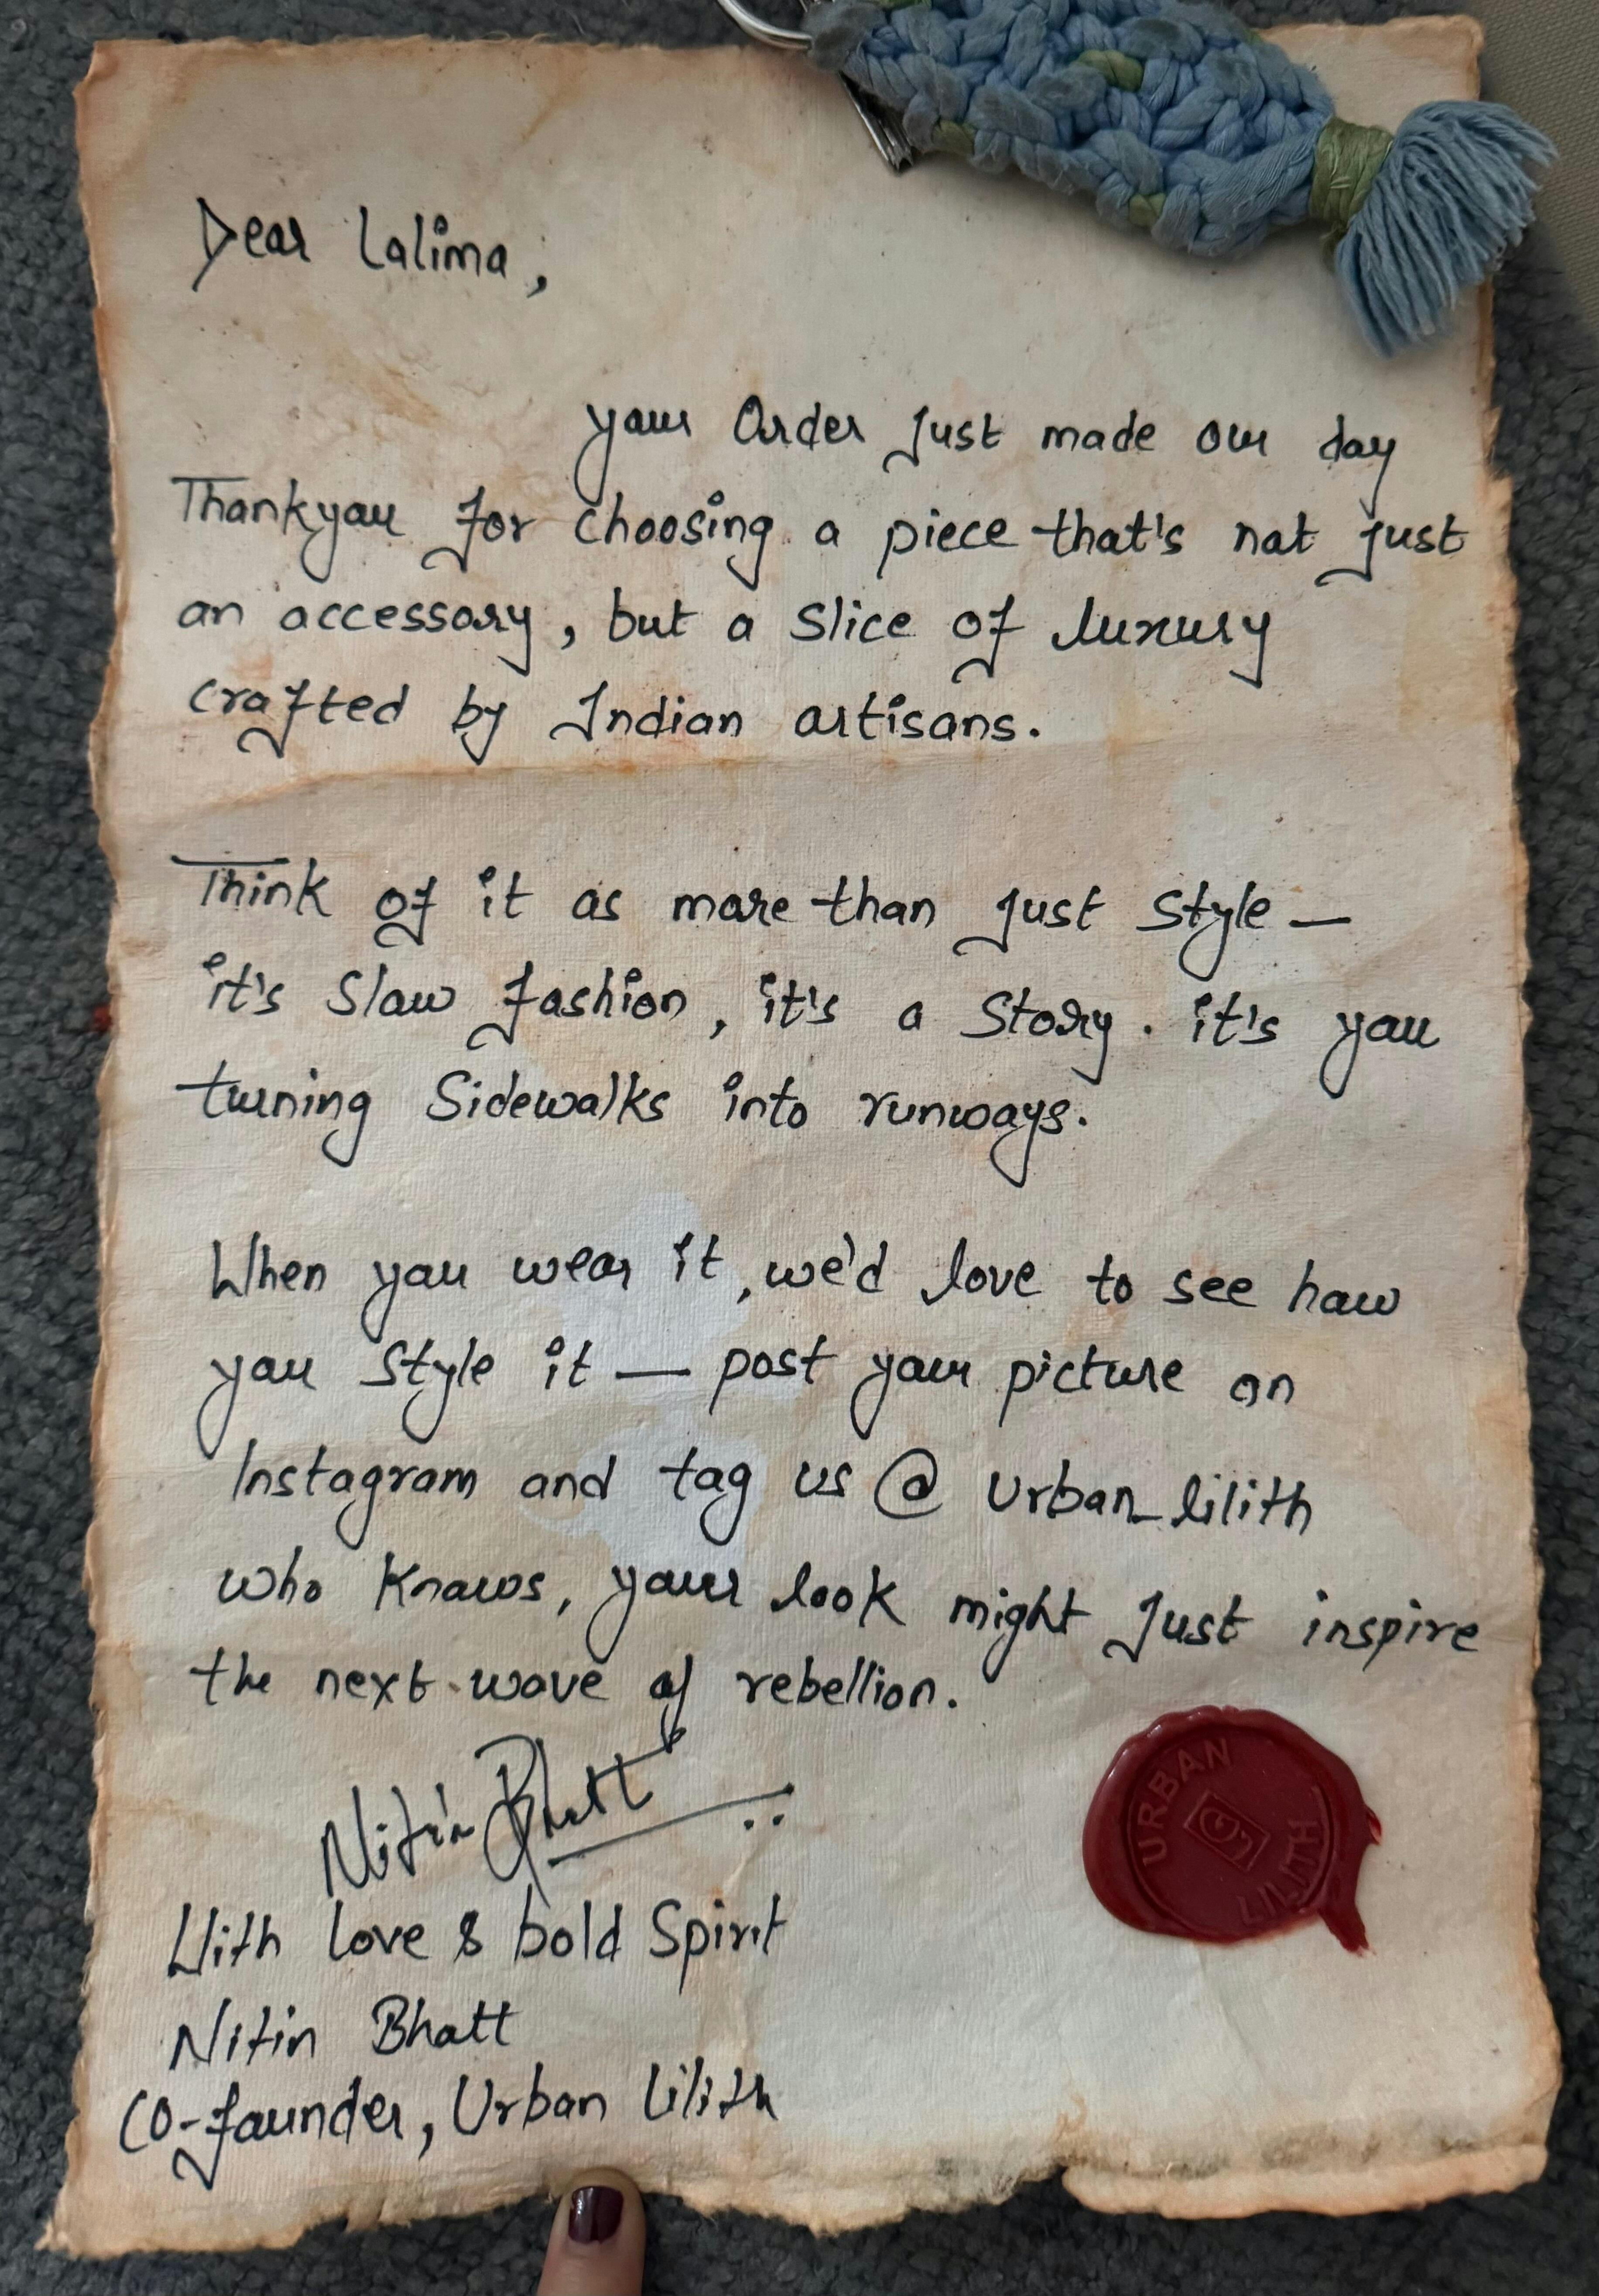 Dear Lalima,
your Order Just made our day
Thankyou for choosing a piece that's not just
an accessory, but a slice of luxury
crafted by Indian artisans.
Think of it as more than just style —
it's slow fashion, it's a story. it's you
turning Sidewalks into runways.
When you wear it, we'd love to see how
you style it — post your picture on
Instagram and tag us @ Urban_lilith
who knows, your look might Just inspire
the next wave of rebellion.
Nitin Bhatt
With love & bold Spirit
Nitin Bhatt
Co-founder, Urban Lilith
URBAN
LILITH